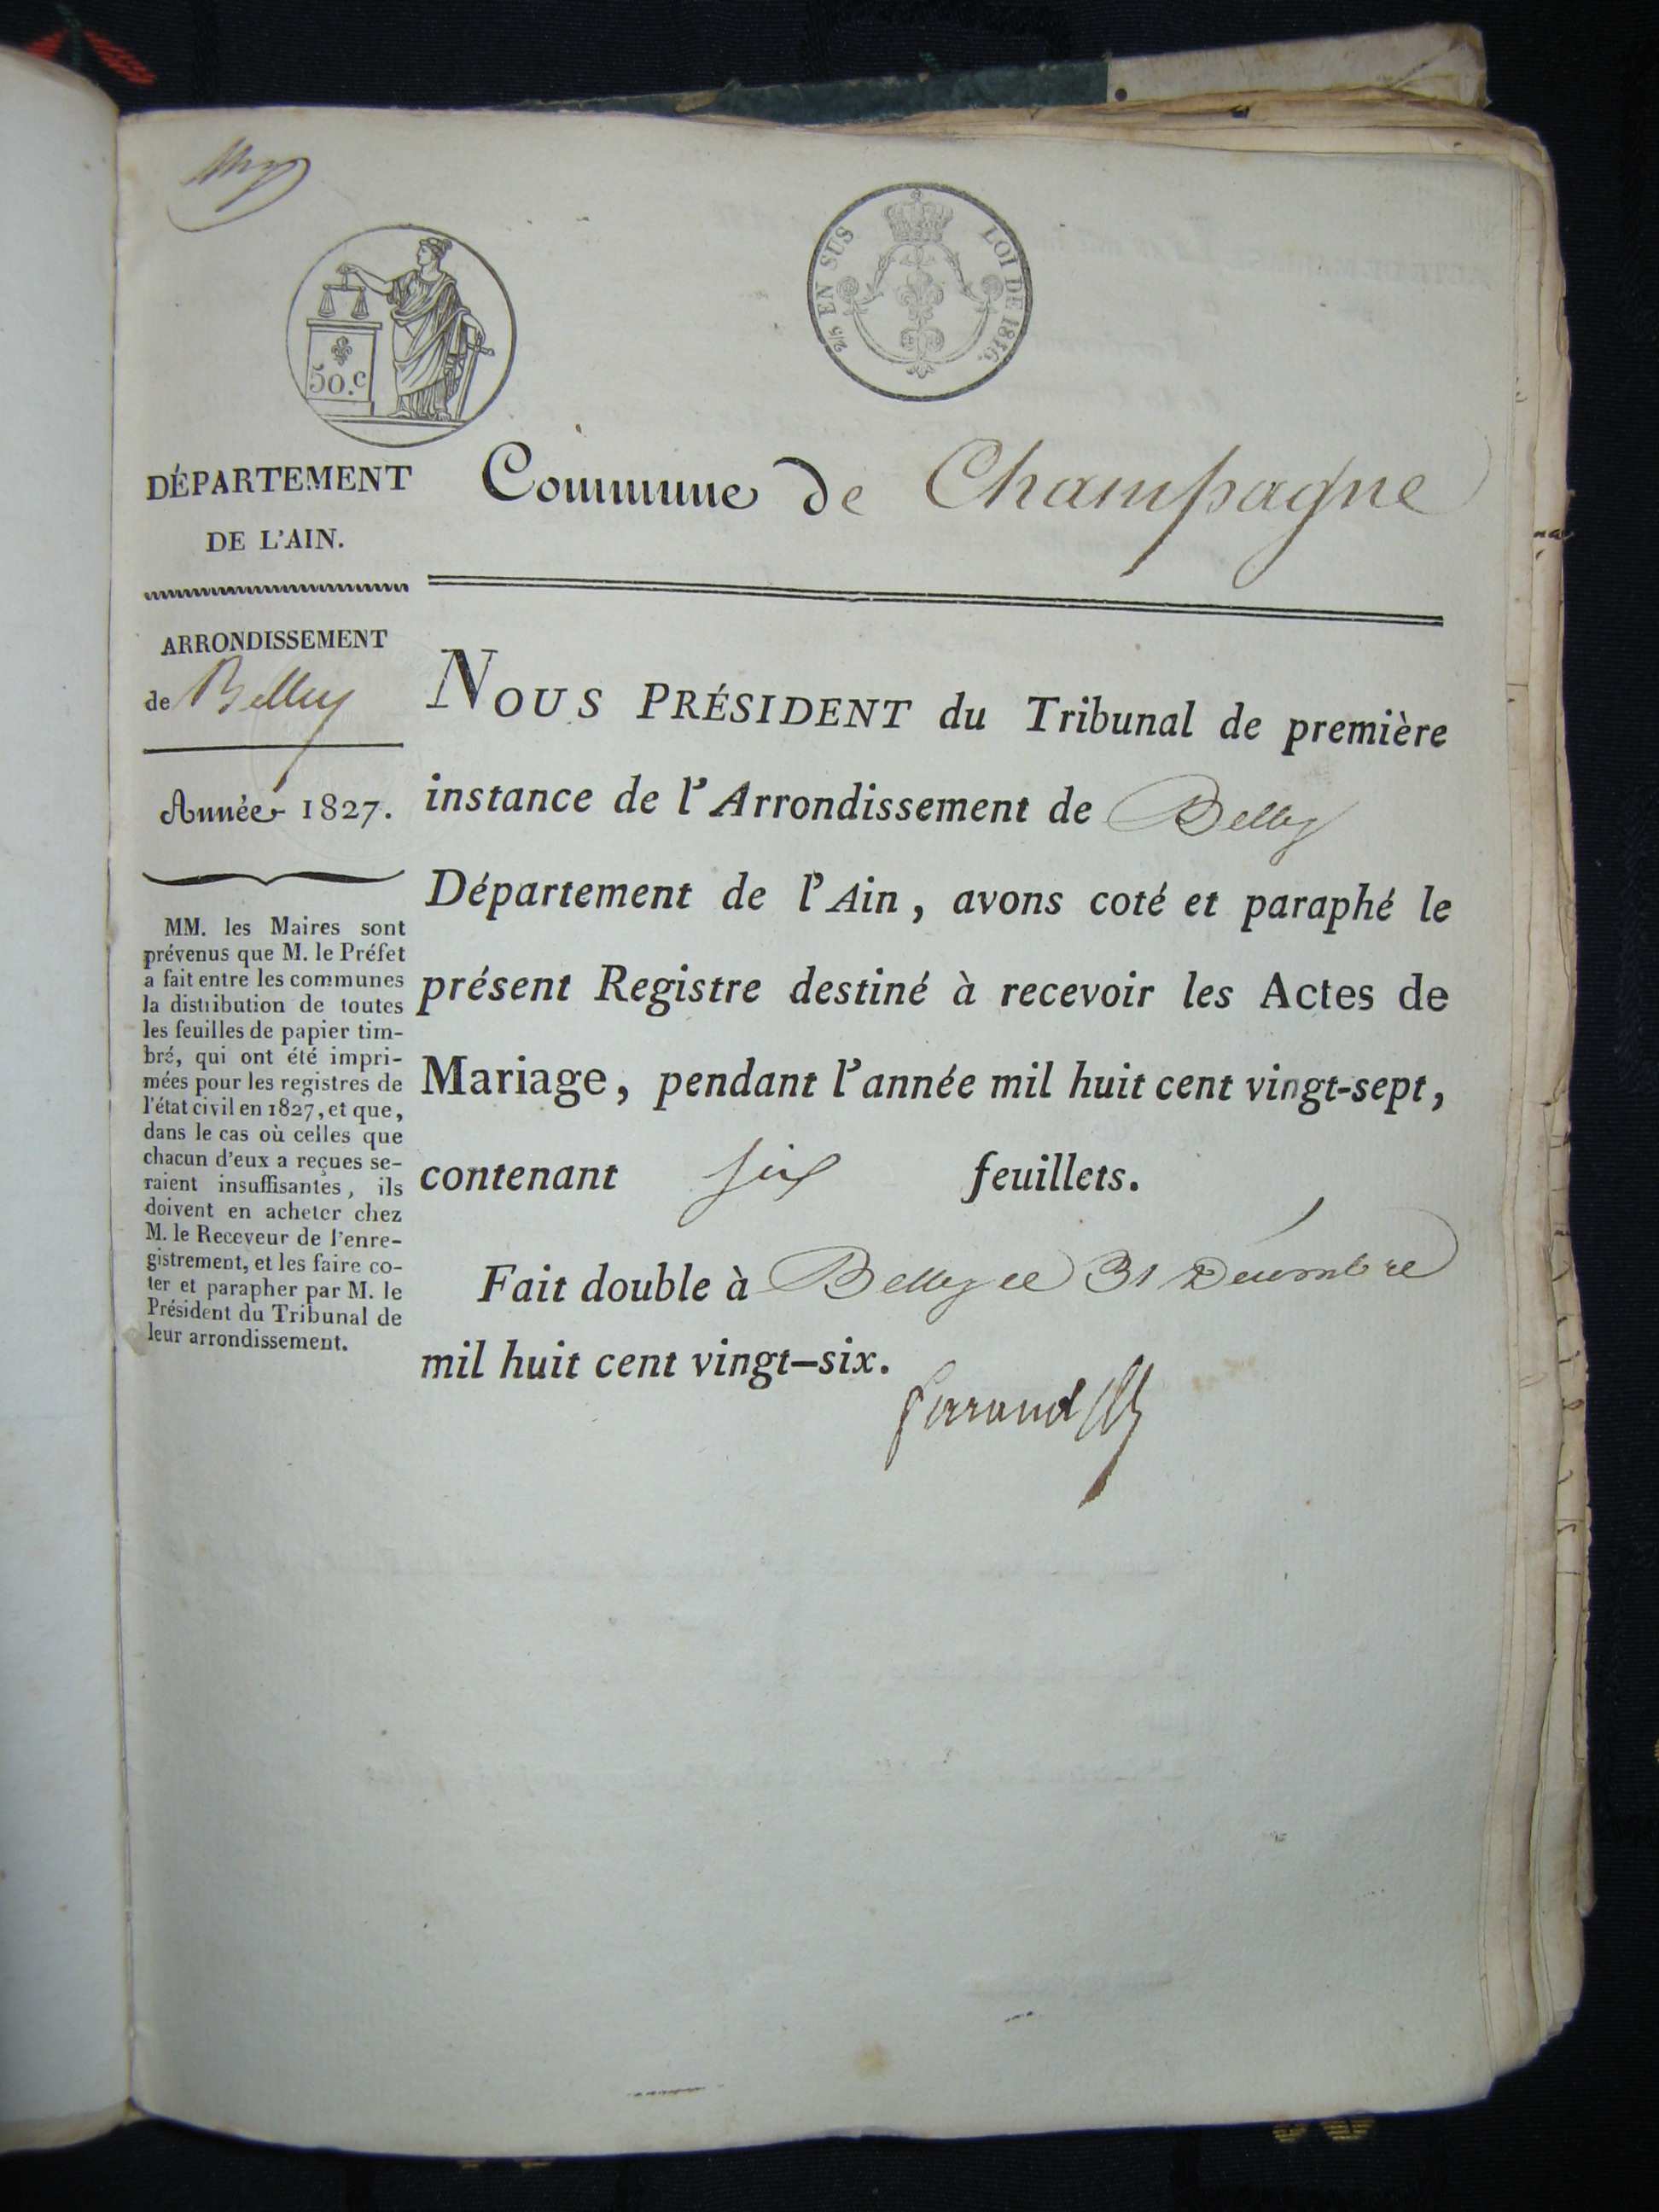 50.c
2/5 EN SUS LOI DE 1816.
DÉPARTEMENT
DE L'AIN.
Commune de Champagne
ARRONDISSEMENT
de Belley
Année 1827.
MM. les Maires sont
prévenus que M. le Préfet
a fait entre les communes
la distribution de toutes
les feuilles de papier tim-
bré, qui ont été impri-
mées pour les registres de
l'état civil en 1827, et que,
dans le cas où celles que
chacun d'eux a reçues se-
raient insuffisantes, ils
doivent en acheter chez
M. le Receveur de l'enre-
gistrement, et les faire co-
ter et parapher par M. le
Président du Tribunal de
leur arrondissement.
NOUS PRÉSIDENT du Tribunal de première
instance de l'Arrondissement de Belley
Département de l'Ain, avons coté et paraphé le
présent Registre destiné à recevoir les Actes de
Mariage, pendant l'année mil huit cent vingt-sept,
contenant six feuillets.
Fait double à Belley ce 31 Décembre
mil huit cent vingt-six.